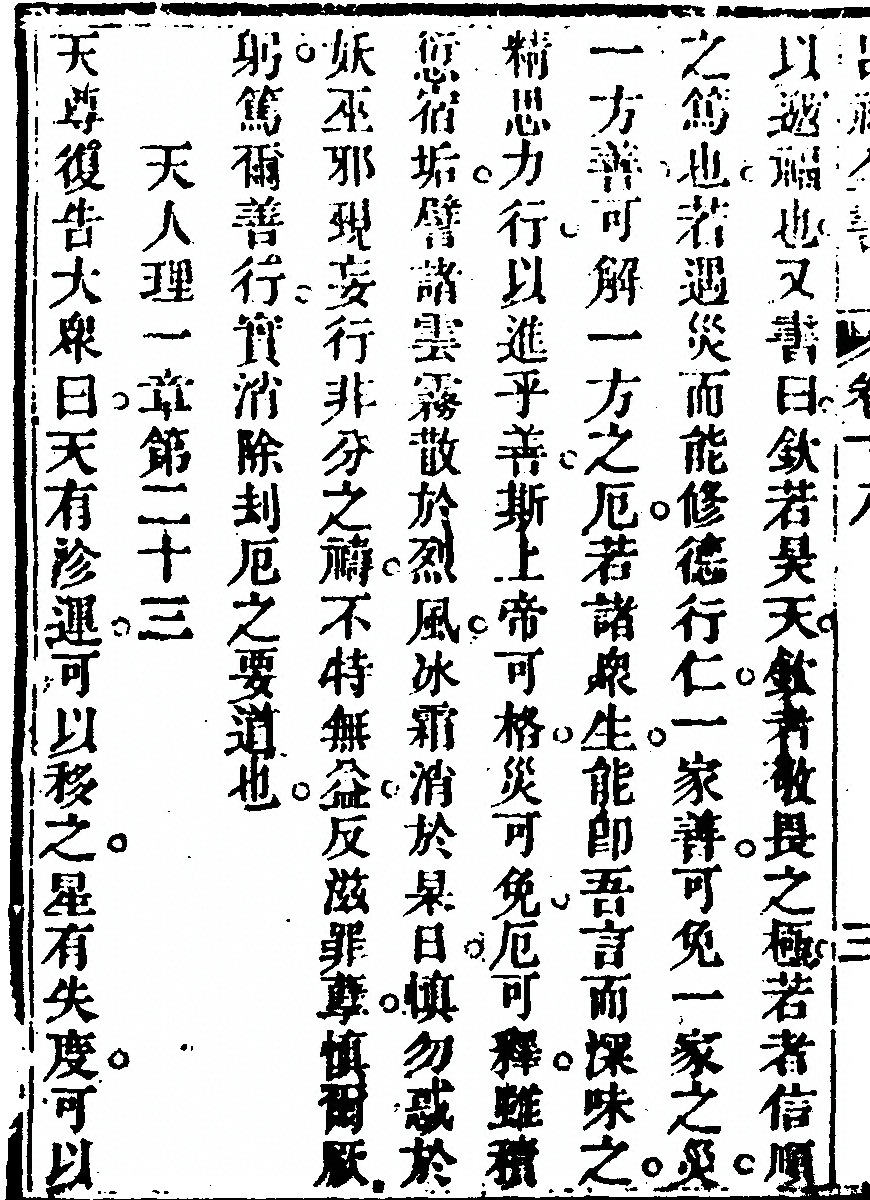 以邀福也又書曰欽若昊天欽者敬畏之極若者信順
之篤也若遇災而能修德行仁一家善可免一家之災
一方善可解一方之厄若諸衆生能卽吾言而深味之
精思力行以進乎善斯上帝可格災可免厄可釋雖積
愆宿垢譬諸雲霧散於烈風冰霜消於杲日慎勿惑於
妖巫邪覡妄行非分之禱不特無益反滋罪孽慎爾厥
躬篤爾善行實消除刦厄之要道也
天人理一章第二十三
天尊復告大衆曰天有沴運可以移之星有失度可以